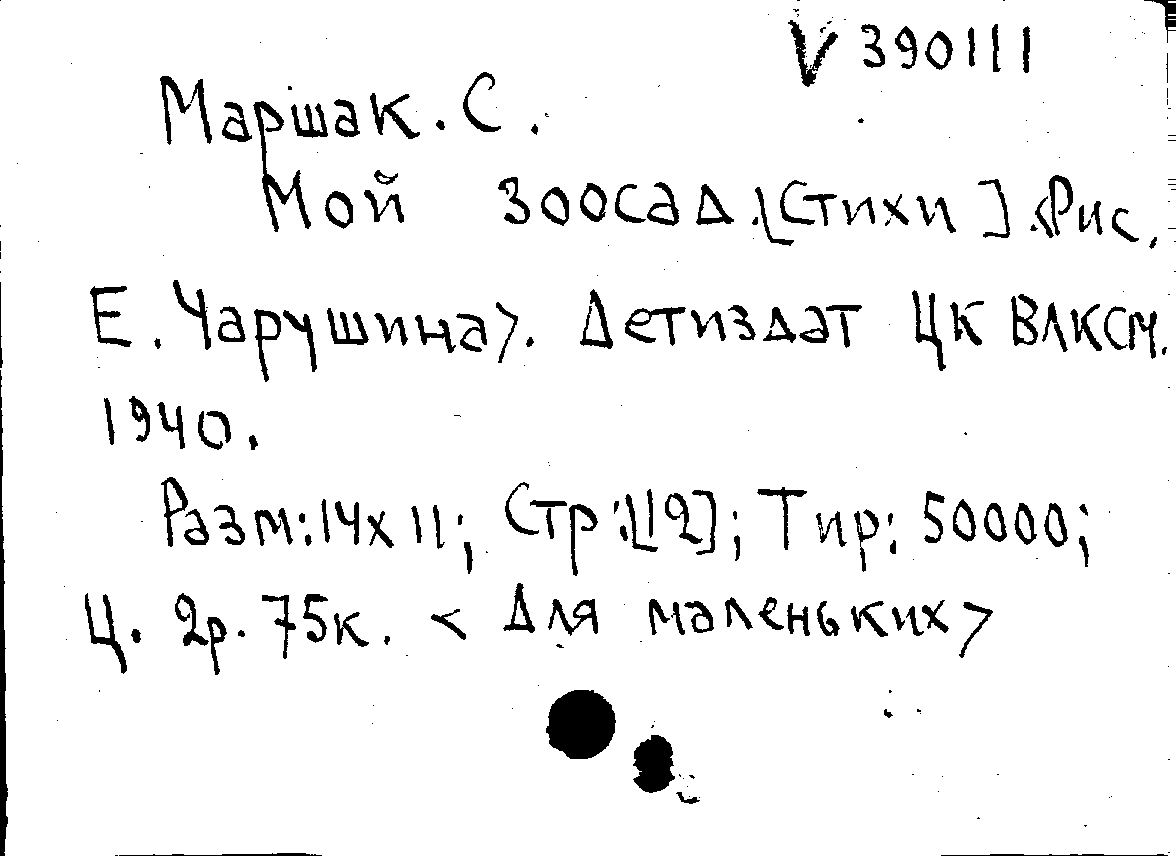 V 390111
Маршак. С.
Мой зоосад. [Стихи]. <Рис.
Е. Чарушина>. Детиздат ЦК ВЛКСМ.
1940.
Разм: 14х11; Стр: [12]; Тир: 50000;
Ц. 2р. 75к. <Для маленьких>